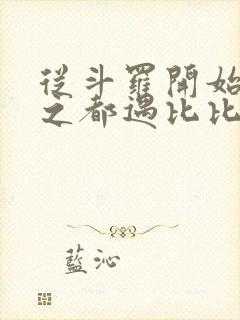 從斗羅開始
之都遇比比
藍沁